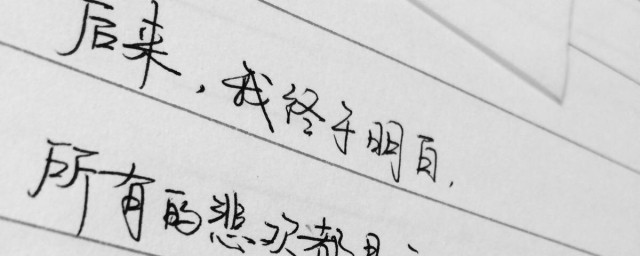 后来，我终于明白，
所有的悲欢都